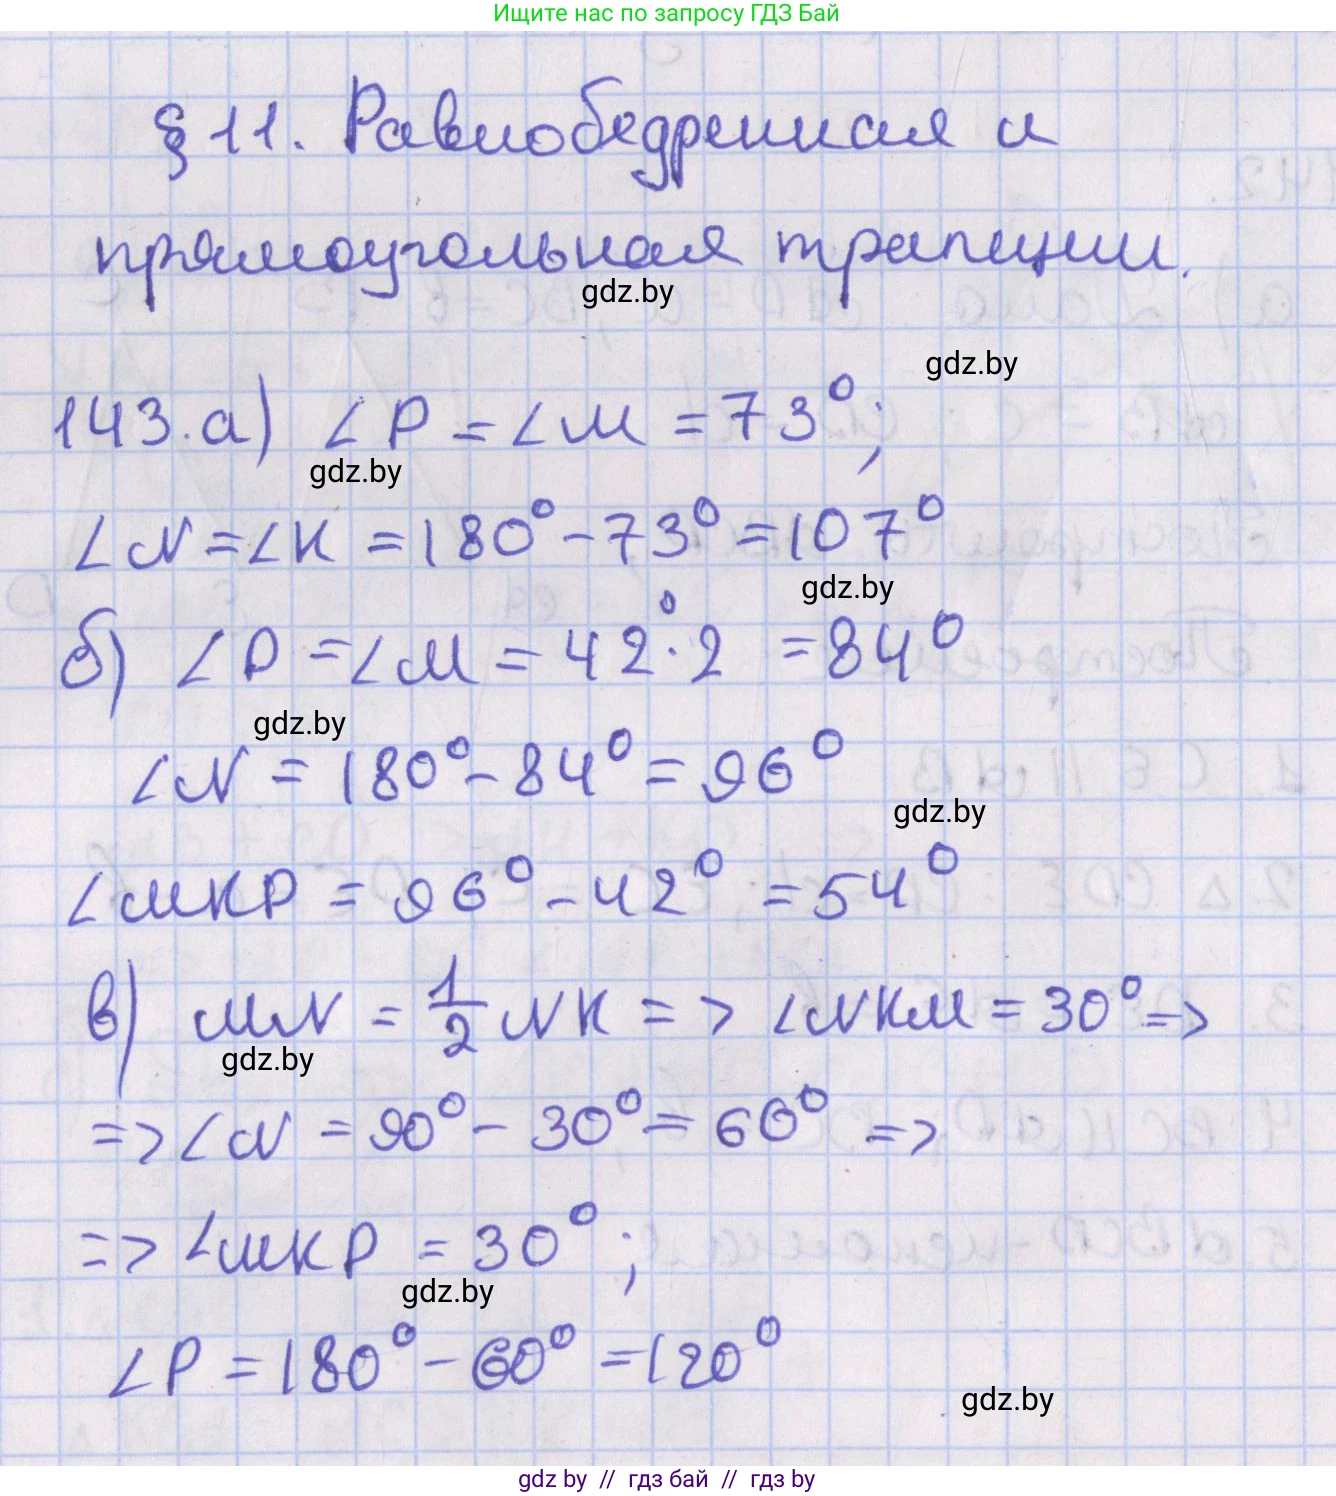 Ищите нас по запросу ГДЗ Бай
§ 11. Равнобедренная и
прямоугольная трапеции.
gdz.by
gdz.by
143. а) ∠P = ∠M = 73°;
gdz.by
∠N = ∠K = 180° - 73° = 107°
gdz.by
б) ∠P = ∠M = 42° · 2 = 84°
gdz.by
∠N = 180° - 84° = 96°
gdz.by
∠MKP = 96° - 42° = 54°
в) MN = 1/2 NK => ∠NKM = 30° =>
gdz.by
=> ∠N = 90° - 30° = 60° =>
=> ∠MKP = 30°;
gdz.by
∠P = 180° - 60° = 120°
gdz.by
gdz by // гдз бай // гдз by